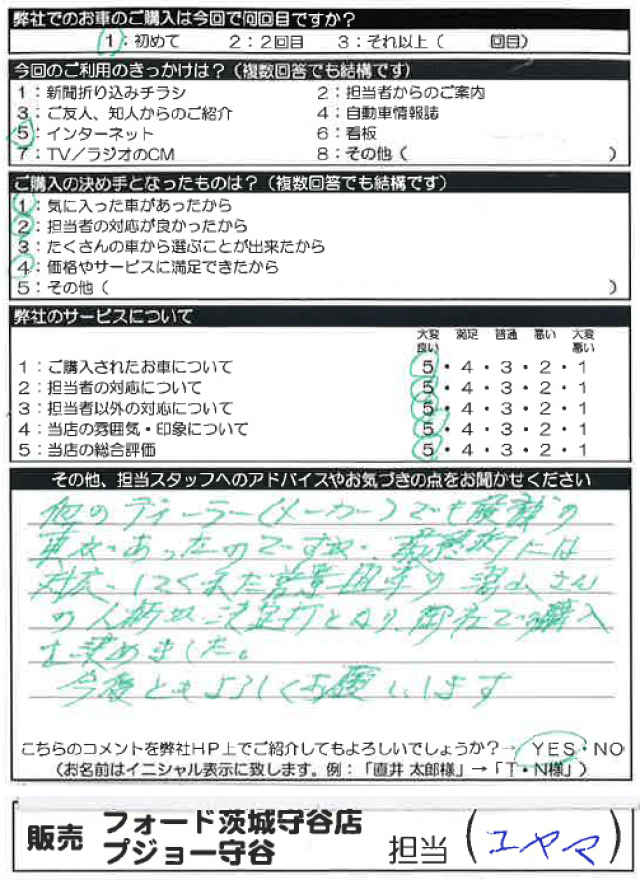 弊社でのお車のご購入は今回で何回目ですか？
1：初めて　2：2回目　3：それ以上（　　回目）
今回のご利用のきっかけは？（複数回答でも結構です）
1：新聞折り込みチラシ　2：担当者からのご案内
3：ご友人、知人からのご紹介　4：自動車情報誌
5：インターネット　6：看板
7：TV／ラジオのCM　8：その他（　　）
ご購入の決め手となったものは？（複数回答でも結構です）
1：気に入った車があったから
2：担当者の対応が良かったから
3：たくさんの車から選ぶことが出来たから
4：価格やサービスに満足できたから
5：その他（　　）
弊社のサービスについて
大変良い　満足　普通　悪い　大変悪い
1：ご購入されたお車について　5・4・3・2・1
2：担当者の対応について　5・4・3・2・1
3：担当者以外の対応について　5・4・3・2・1
4：当店の雰囲気・印象について　5・4・3・2・1
5：当店の総合評価　5・4・3・2・1
その他、担当スタッフへのアドバイスやお気づきの点をお聞かせください
他のディーラー（メーカー）でも の
車があったのですが、 には
対応してくれた さん
の人柄が決定打となり、御社で購入
を決めました。
今後ともよろしくお願いします
こちらのコメントを弊社HP上でご紹介してもよろしいでしょうか？→　YES・NO
（お名前はイニシャル表示に致します。例：「直井 太郎様」→「T・N様」）
販売　フォード茨城守谷店
プジョー守谷　担当（ユヤマ）